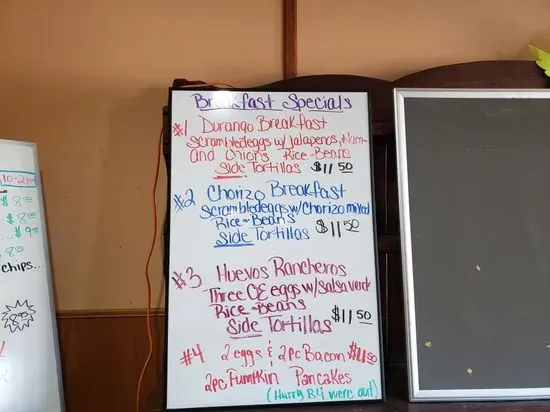 Breakfast Specials
#1 Durango Breakfast
Scrambled eggs w/ jalapenos, Ham
and Onions Rice-Beans
Side Tortillas $11 50
#2 Chorizo Breakfast
Scrambled eggs w/Chorizo mixed
Rice-Beans
Side Tortillas $11 50
#3 Huevos Rancheros
Three OE eggs w/Salsa verde
Rice-Beans $11 50
Side Tortillas
#4 2 eggs & 2pc Bacon $11 50
2pc Pumpkin Pancakes
(Hurry B4 were out)
10-2
$8 00
$8 00
$9 00
8 00
Chips...
8 95